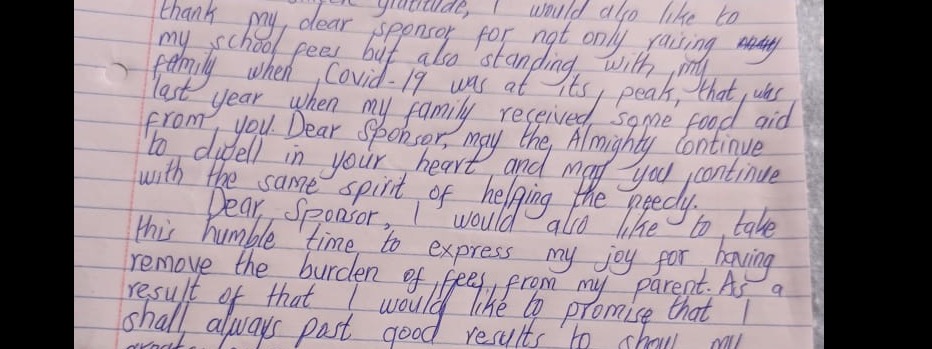 gratitude, I would also like to
thank my dear sponsor for not only raising
my school fees but also standing with my
family when Covid-19 was at its peak, that was
last year when my family received some food aid
from you. Dear Sponsor, may the Almighty continue
to dwell in your heart and may you continue
with the same spirit of helping the needy.
Dear Sponsor, I would also like to take
this humble time to express my joy for having
remove the burden of fees from my parent. As a
result of that I would like to promise that I
shall always past good results to show my